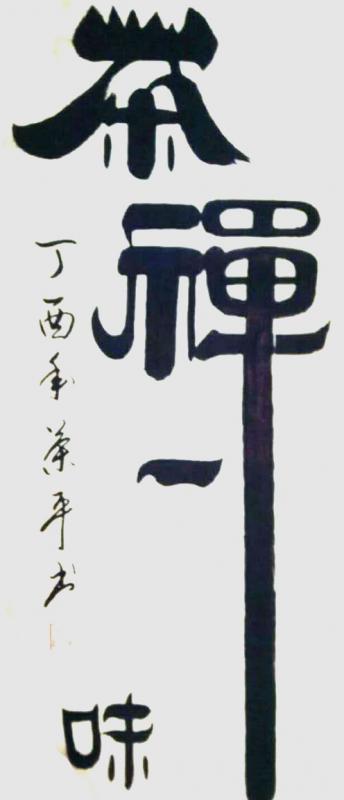 茶禪一味
丁酉年荣平书